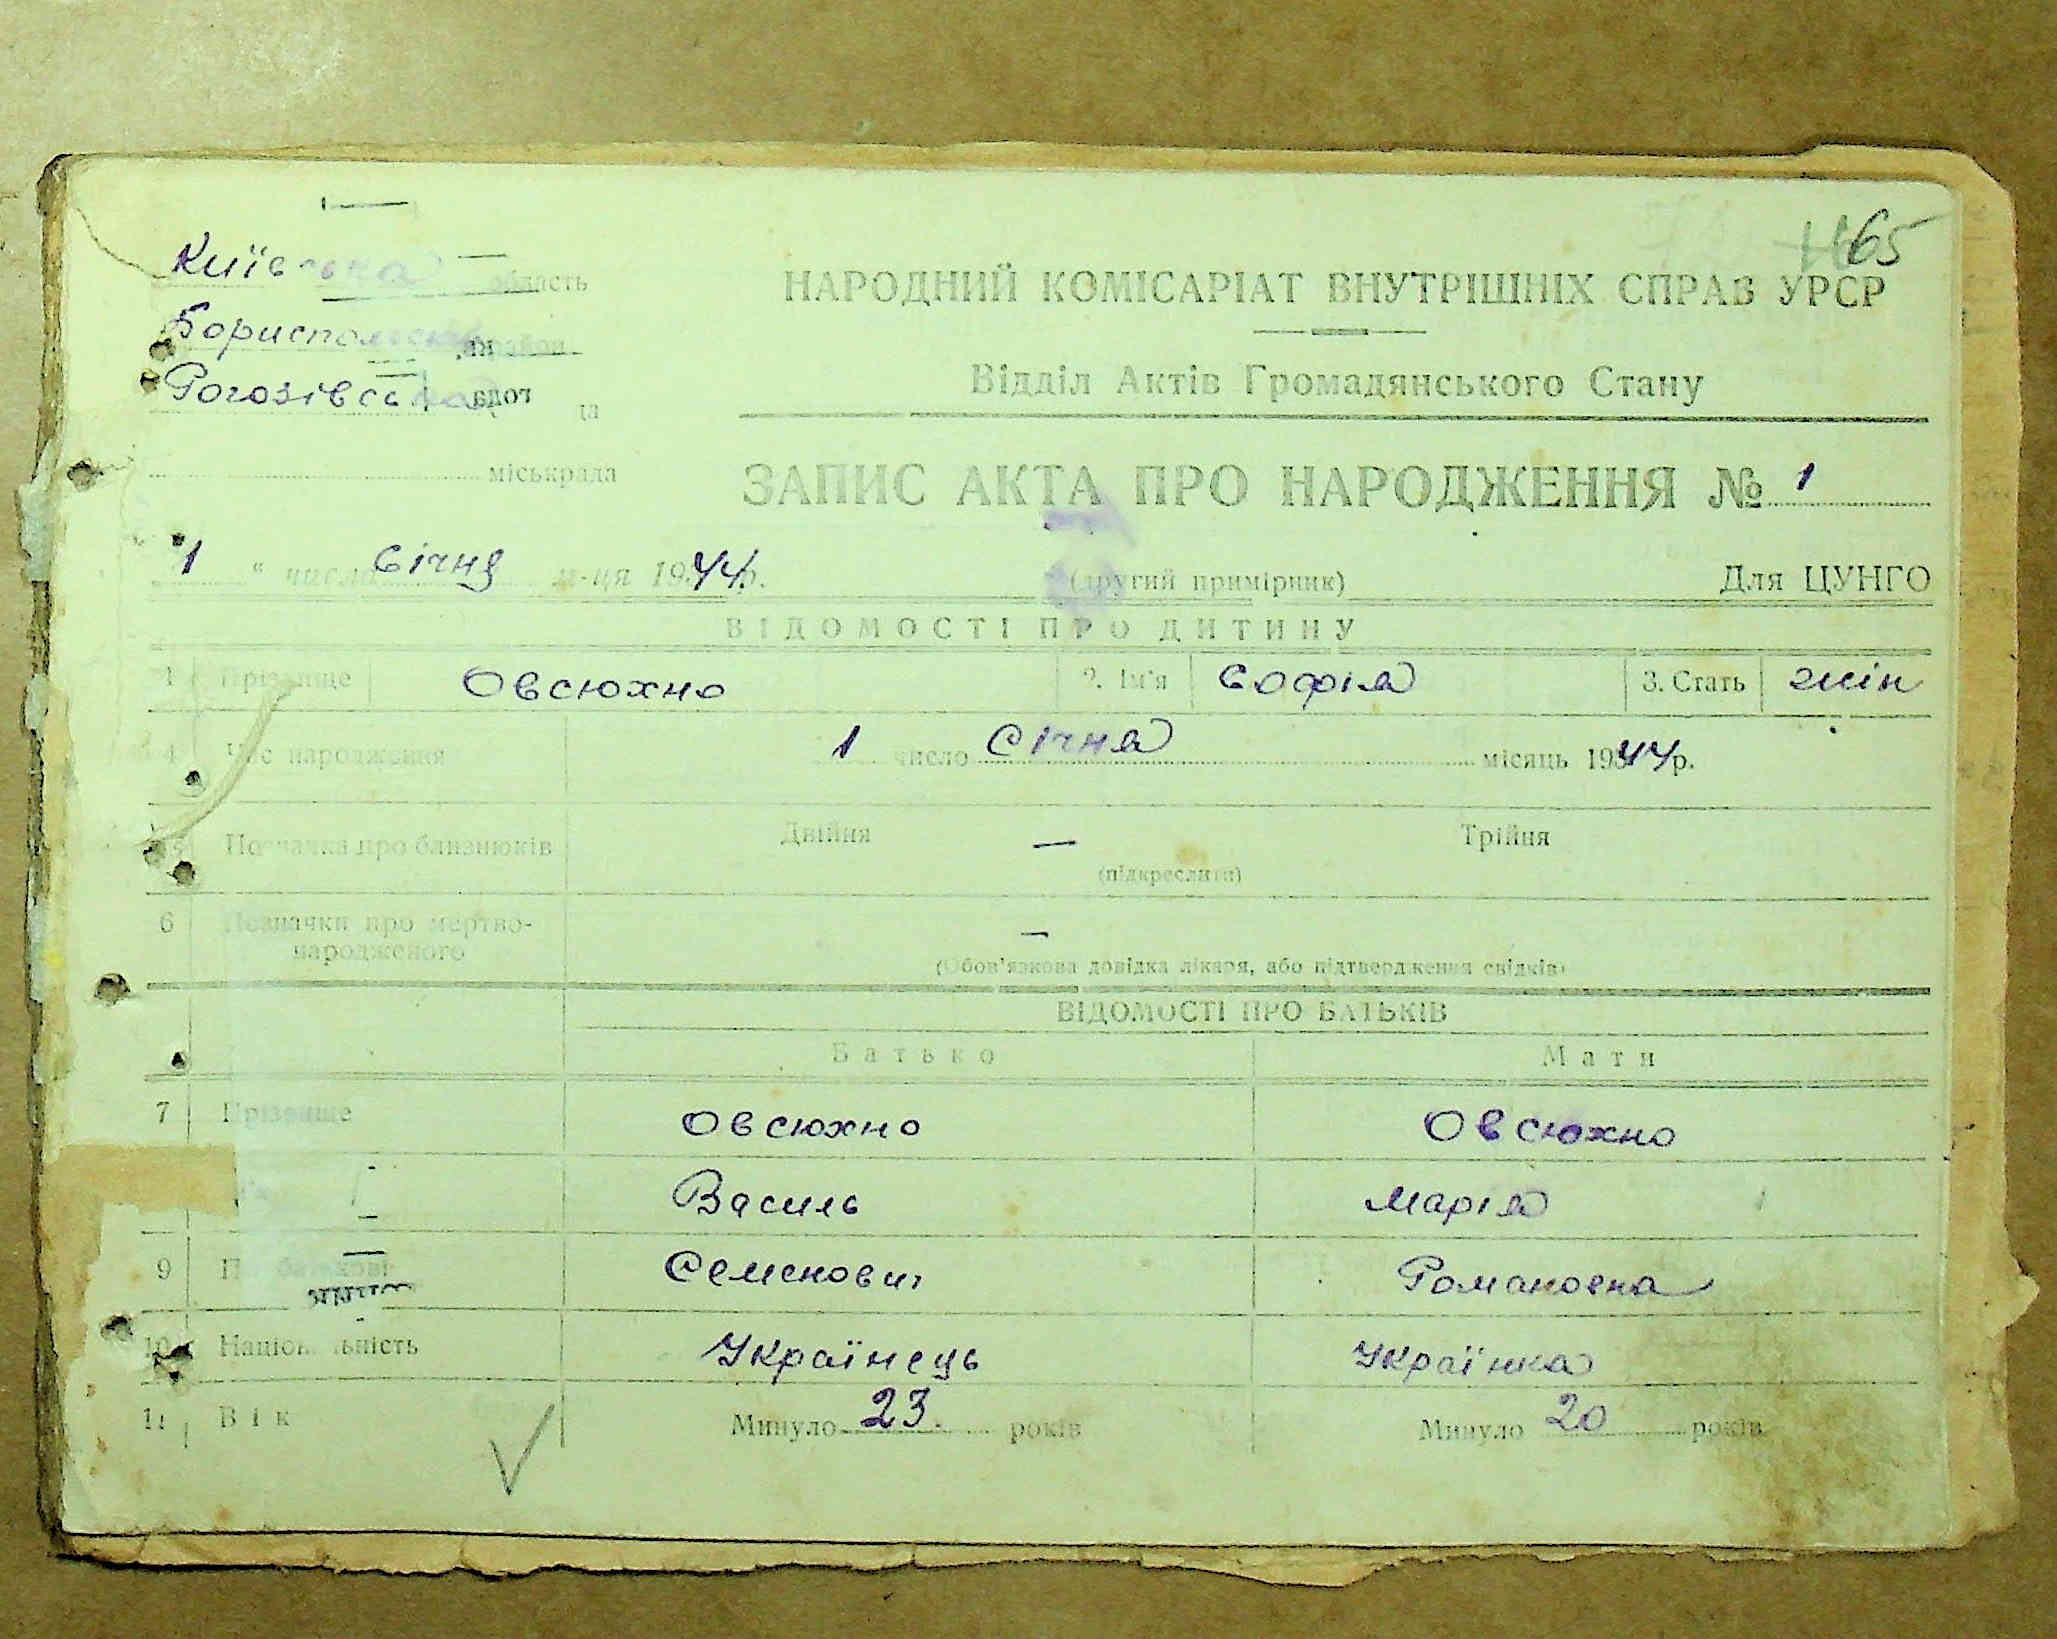 165
Київська область
НАРОДНИЙ КОМІСАРІАТ ВНУТРІШНІХ СПРАВ УРСР
Бориспольський район
Відділ Актів Громадянського Стану
Рогозівська
міськрада
ЗАПИС АКТА ПРО НАРОДЖЕННЯ № 1
1 “ числа Січня м-ця 1944 р.
(другий примірник)
Для ЦУНГО
ВІДОМОСТІ ПРО ДИТИНУ
1 Прізвище Овсюхно 2. Ім'я Софія 3. Стать жін
4 Час народження 1 число Січня місяць 1944 р.
5 Позначка про близнюків Двійня — Трійня
(підкреслити)
6 Позначки про мертво-
народженого —
(Обов'язкова довідка лікаря, або підтвердження свідків)
ВІДОМОСТІ ПРО БАТЬКІВ
Батько Мати
7 Прізвище Овсюхно Овсюхно
Василь Марія
9 По батькові Семенович Романовна
10 Національність Українець Українка
11 Вік Минуло 23 років Минуло 20 років